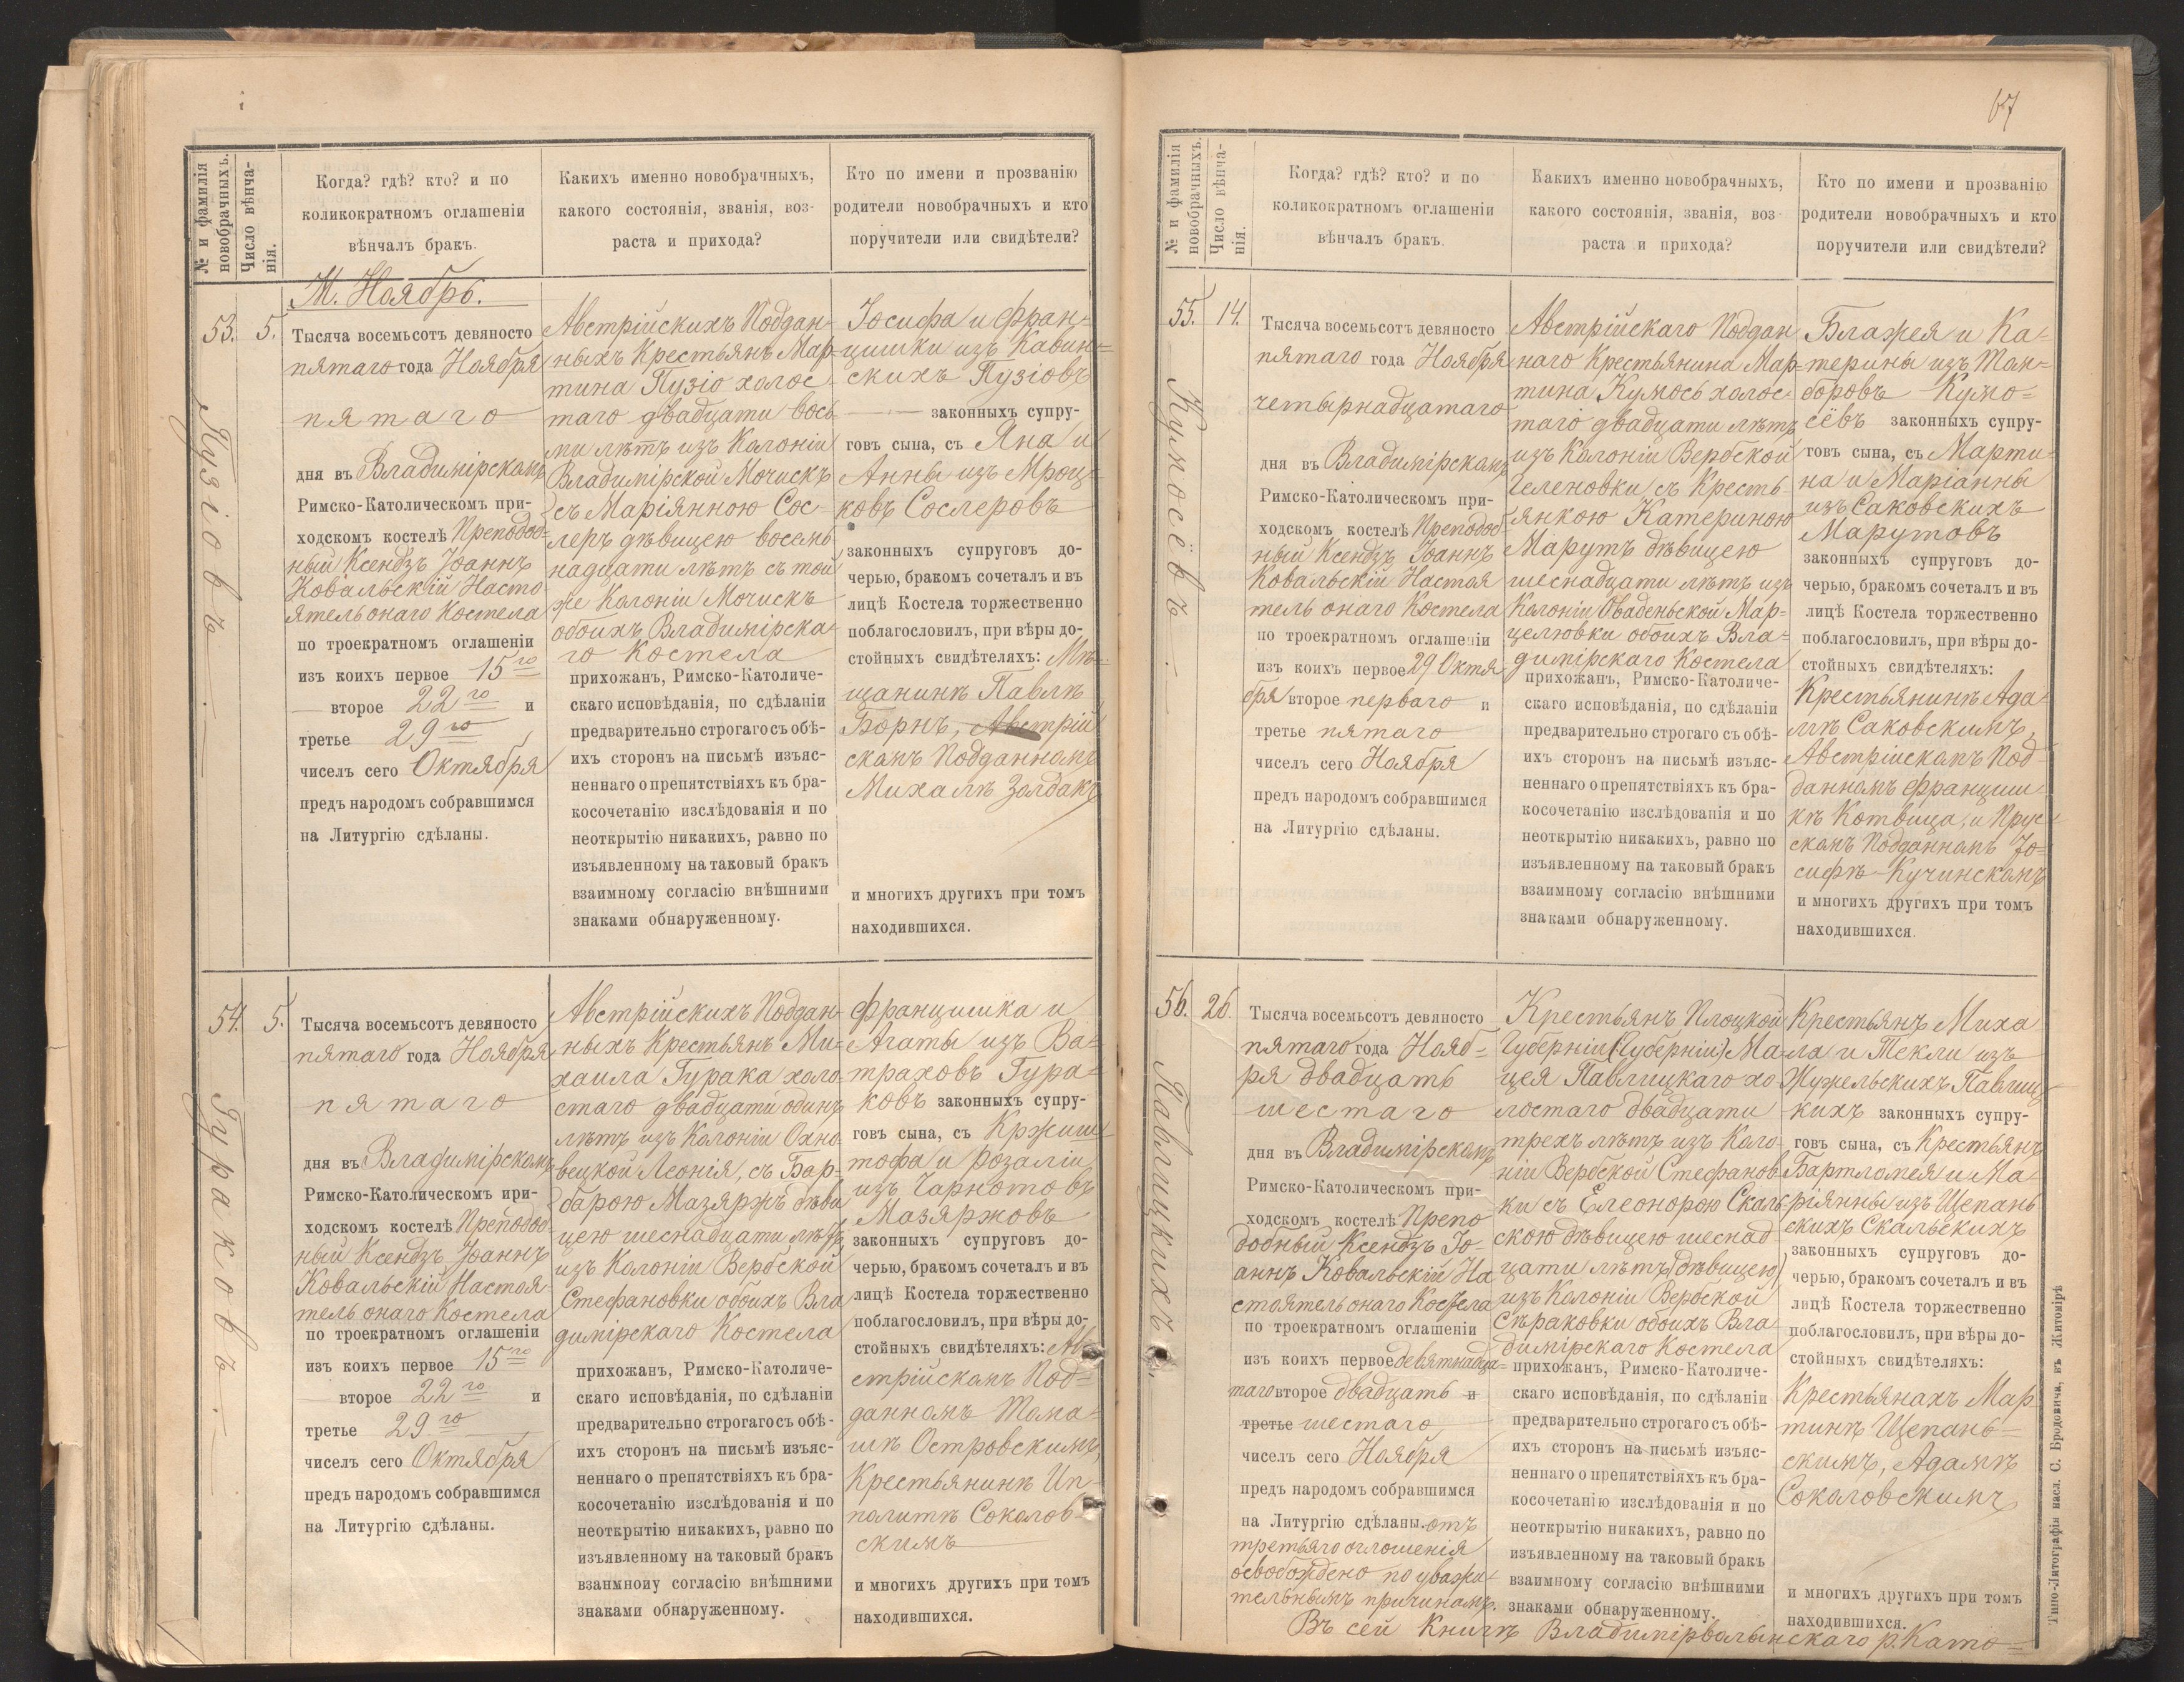 № и фамилія
новобрачныхъ.
Число вѣнча-
нія.
Когда? гдѣ? кто? и по
коликократномъ оглашеніи
вѣнчалъ бракъ.
Какихъ именно новобрачныхъ,
какого состоянія, званія, воз-
раста и прихода?
Кто по имени и прозванію
родители новобрачныхъ и кто
поручители или свидѣтели?
М. Ноябрь.
53.
5.
Пузіовъ.
Тысяча восемьсотъ девяносто
пятаго года Ноября
пятаго
дня въ Владимірскомъ
Римско-Католическомъ при-
ходскомъ костелѣ Преподоб-
ный Ксендзъ Іоаннъ
Ковальскій Насто-
ятель онаго Костела
по троекратномъ оглашеніи
изъ коихъ первое 15го
второе 22го и
третье 29го
чиселъ сего Октября
предъ народомъ собравшимся
на Литургію сдѣланы.
Австрійскихъ Поддан-
ныхъ Крестьянъ Мар-
тина Пузіо холос-
таго двадцати вось
ми лѣтъ изъ Колоніи
Владимірской Мочискъ
съ Маріянною Сос-
леръ дѣвицею восемь
надцати лѣтъ съ той
же Колоніи Мочискъ
обоихъ Владимірска-
го Костела
прихожанъ, Римско-Католиче-
скаго исповѣданія, по сдѣланіи
предварительно строгаго съ обѣ-
ихъ сторонъ на письмѣ изъяс-
неннаго о препятствіяхъ къ бра-
косочетанію изслѣдованія и по
неоткрытію никакихъ, равно по
изъявленному на таковый бракъ
взаимному согласію внѣшними
знаками обнаруженному.
Іосифа и Фран-
цишки изъ Кавин-
скихъ Пузіовъ
законныхъ супру-
говъ сына, съ Яна и
Анны изъ Мроч-
ковъ Сослеровъ
законныхъ супруговъ до-
черью, бракомъ сочеталъ и въ
лицѣ Костела торжественно
поблагословилъ, при вѣры до-
стойныхъ свидѣтеляхъ: Мѣ-
щанинѣ Павлѣ
Борнъ, Австрій
скомъ Подданномъ
Михалѣ Золдакъ
и многихъ другихъ при томъ
находившихся.
54.
5.
Гураковъ.
Тысяча восемьсотъ девяносто
пятаго года Ноября
пятаго
дня въ Владимірскомъ
Римско-Католическомъ при-
ходскомъ костелѣ Преподоб-
ный Ксендзъ Іоаннъ
Ковальскій Настоя-
тель онаго Костела
по троекратномъ оглашеніи
изъ коихъ первое 15го
второе 22го и
третье 29го
чиселъ сего Октября
предъ народомъ собравшимся
на Литургію сдѣланы.
Австрійскихъ Поддан-
ныхъ Крестьянъ Ми-
хаила Гурака холо-
стаго двадцати одинъ
лѣтъ изъ Колоніи Охно-
вецкой Леонія, съ Бар-
барою Мазяржъ дѣви
цею шеснадцати лѣтъ
изъ Колоніи Вербской
Стефановки обоихъ Вла
димірскаго Костела
прихожанъ, Римско-Католиче-
скаго исповѣданія, по сдѣланіи
предварительно строгаго съ обѣ-
ихъ сторонъ на письмѣ изъяс-
неннаго о препятствіяхъ къ бра-
косочетанію изслѣдованія и по
неоткрытію никакихъ, равно по
изъявленному на таковый бракъ
взанмноиу согласію внѣшними
знаками обнаруженному.
Францишка и
Агаты изъ Ва-
траховъ Гура-
ковъ законныхъ супру-
говъ сына, съ Кржиш-
тофа и Розаліи
изъ Чарнотовъ
Мазяржовъ
законныхъ супруговъ до-
черью, бракомъ сочеталъ и въ
лицѣ Костела торжественно
поблагословилъ, при вѣры до-
стойныхъ свидѣтеляхъ: Ав-
стрійскомъ Под-
данномъ Тома-
шѣ Островскимъ,
Крестьянинѣ Ип-
политѣ Соколов-
скимъ
и многихъ другихъ при томъ
находившихся.
67
№ и фамилія
новобрачныхъ.
Число вѣнча-
нія.
Когда? гдѣ? кто? и по
коликократномъ оглашеніи
вѣнчалъ бракъ.
Какихъ именно новобрачныхъ,
какого состоянія, званія, воз
раста и прихода?
Кто по имени и прозванію
родители новобрачныхъ и кто
поручители или свидѣтели?
55.
14.
Кумосёвъ.
Тысяча восемьсотъ девяносто
пятаго года Ноября
четырнадцатаго
дня въ Владимірскомъ
Римско-Католическомъ при-
ходскомъ костелѣ Преподоб-
ный Ксендзъ Іоаннъ
Ковальскій Настоя
тель онаго Костела
по троекратномъ оглашеніи
изъ коихъ первое 29 Октя
бря второе перваго и
третье пятаго
чиселъ сего Ноября
предъ народомъ собравшимся
на Литургію сдѣланы.
Австрійскаго Поддан
наго Крестьянина Мар-
тина Кумось холос-
таго двадцати лѣтъ
изъ Колоніи Вербской
Геленовки съ Кресть-
янкою Катериною
Марутъ дѣвицею
шеснадцати лѣтъ изъ
Колоніи Оваденьской Мар-
целювки обоихъ Вла-
димірскаго Костела
прихожанъ, Римско-Католиче-
скаго исповѣданія, по сдѣланіи
предварительно строгаго съ обѣ-
ихъ сторонъ на письмѣ изъяс-
неннаго о препятствіяхъ къ бра-
косочетанію изслѣдованія и по
неоткрытію никакихъ, равно по
изъявленному на таковый бракъ
взаимному согласію внѣшними
знаками обнаруженному.
Блажея и Ка-
терины изъ Тан-
боровъ Кумо-
сёвъ законныхъ супру-
говъ сына, съ Марти
на и Маріанны
изъ Саковскихъ
Марутовъ
законныхъ супруговъ до-
черью, бракомъ сочеталъ и въ
лицѣ Костела торжественно
поблагословилъ, при вѣры до-
стойныхъ свидѣтеляхъ:
Крестьянинѣ Ада-
мѣ Саковскимъ,
Австрійскомъ Под-
данномъ Францыш-
кѣ Котвица, и Прус-
скомъ Подданномъ Іо-
сифѣ Кучинскомъ
и многихъ другихъ при томъ
находившихся.
56.
26.
Павлицкихъ.
Тысяча восемьсотъ девяносто
пятаго года Нояб-
ря двадцать
шестаго
дня въ Владимірскомъ
Римско-Католическомъ при-
ходскомъ костелѣ Препо
добный Ксендзъ Іо-
аннъ Ковальскій На
стоятель онаго Костела
по троекратномъ оглашеніи
изъ коихъ первое девятнадца-
таго второе двадцать и
третье шестаго
чиселъ сего Ноября
предъ народомъ собравшимся
на Литургію сдѣланы. отъ
третьяго оглошенія
освобождено по уважи-
тельнымъ причинамъ.
Крестьянъ Плоцкой
Губерніи (Губерніи) Ма-
цея Павлицкаго хо
лостаго двадцати
трехъ лѣтъ изъ Коло-
ніи Вербской Стефанов
ки съ Елеонорою Скаль
скою дѣвицею шеснад
цати лѣтъ (дѣвицею)
изъ Колоніи Вербской
Сѣраковки обоихъ Вла
димірскаго Костела
прихожанъ, Римско-Католиче-
скаго исповѣданія, по сдѣланіи
предварительно строгаго съ обѣ-
ихъ сторонъ на письмѣ изъяс-
неннаго о препятствіяхъ къ бра-
косочетанію изслѣдованія и по
неоткрытію никакихъ, равно по
изъявленному на таковый бракъ
взаимному согласію внѣшними
знаками обнаруженному.
Крестьянъ Миха
ла и Текли изъ
Жужельскихъ Павлиц
кихъ законныхъ супру-
говъ сына, съ Крестьянъ
Бартломея и Ма-
ріянны изъ Щепань
скихъ Скальскихъ
законныхъ супруговъ до-
черью, бракомъ сочеталъ и въ
лицѣ Костела торжественно
поблагословилъ, при вѣры до-
стойныхъ свидѣтеляхъ:
Крестьянахъ Мар
тинѣ Щепань-
скимъ, Адамѣ
Соколовскимъ
и многихъ другихъ при томъ
находившихся.
Въ сей Книгѣ Владимірволынскаго р. Като-
Типо-Литографія насл. С. Бродовича, въ Житомірѣ